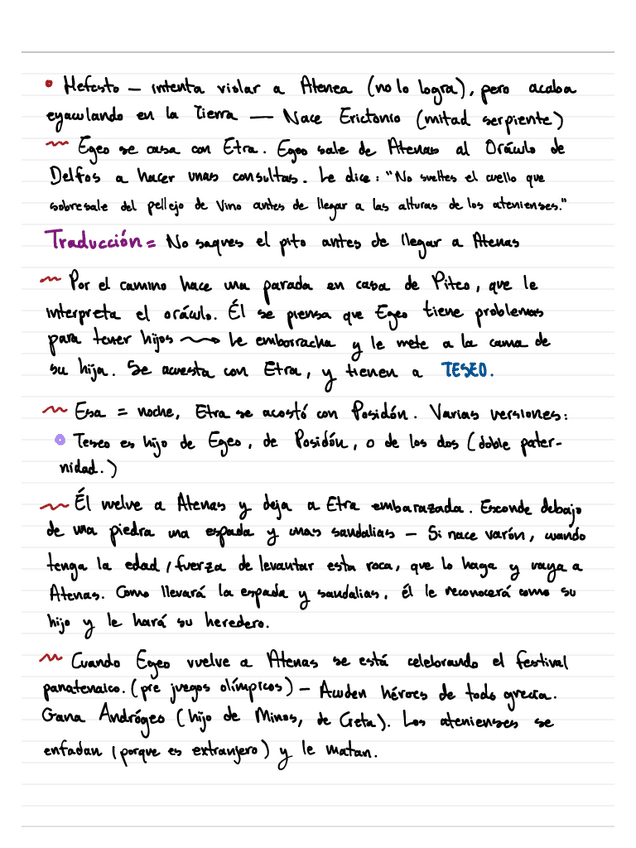 • Hefesto — intenta violar a Atenea (no lo logra), pero acaba
eyaculando en la Tierra — Nace Erictonio (mitad serpiente)
~ Egeo se casa con Etra. Egeo sale de Atenas al Oráculo de
Delfos a hacer unas consultas. Le dice: "No sueltes el cuello que
sobresale del pellejo de Vino antes de llegar a las alturas de los atenienses."
Traducción = No saques el pito antes de llegar a Atenas
~ Por el camino hace una parada en casa de Piteo, que le
interpreta el oráculo. Él se piensa que Egeo tiene problemas
para tener hijos ~> Le emborracha y le mete a la cama de
su hija. Se acuesta con Etra, y tienen a TESEO.
~ Esa = noche, Etra se acostó con Posidón. Varias versiones:
• Teseo es hijo de Egeo, de Posidón, o de los dos (doble pater-
nidad.)
~ Él vuelve a Atenas y deja a Etra embarazada. Esconde debajo
de una piedra una espada y unas sandalias — Si nace varón, cuando
tenga la edad / fuerza de levantar esta roca, que lo haga y vaya a
Atenas. Como llevará la espada y sandalias, él le reconocerá como su
hijo y le hará su heredero.
~ Cuando Egeo vuelve a Atenas se está celebrando el festival
panatenaico. (pre juegos olímpicos) — Acuden héroes de todo grecia.
Gana Andrógeo (hijo de Minos, de Creta). Los atenienses se
enfadan (porque es extranjero) y le matan.